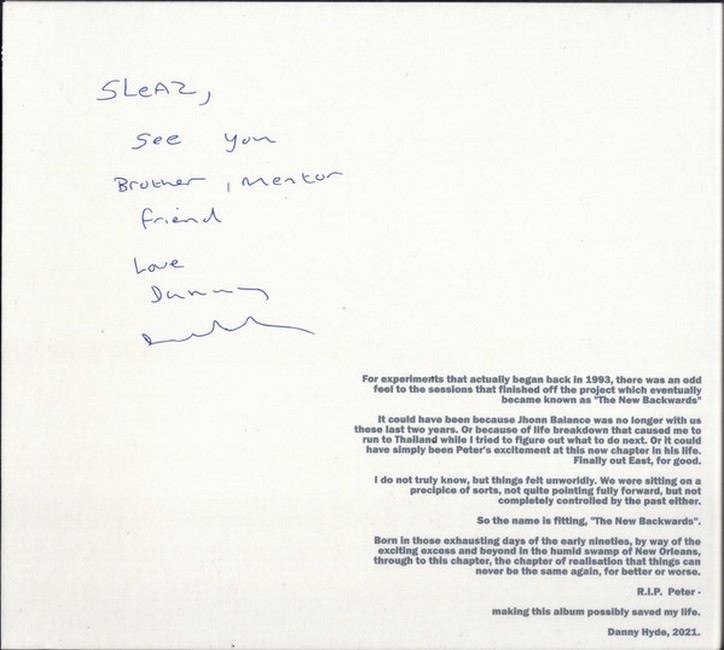 SLeAZ,
See you
Brother, Mentor
friend
Love
Danny
For experiments that actually began back in 1993, there was an odd
feel to the sessions that finished off the project which eventually
became known as "The New Backwards"
It could have been because Jhonn Balance was no longer with us
these last two years. Or because of life breakdown that caused me to
run to Thailand while I tried to figure out what to do next. Or it could
have simply been Peter's excitement at this new chapter in his life.
Finally out East, for good.
I do not truly know, but things felt unworldly. We were sitting on a
precipice of sorts, not quite pointing fully forward, but not
completely controlled by the past either.
So the name is fitting, "The New Backwards".
Born in those exhausting days of the early nineties, by way of the
exciting excess and beyond in the humid swamp of New Orleans,
through to this chapter, the chapter of realisation that things can
never be the same again, for better or worse.
R.I.P. Peter -
making this album possibly saved my life.
Danny Hyde, 2021.